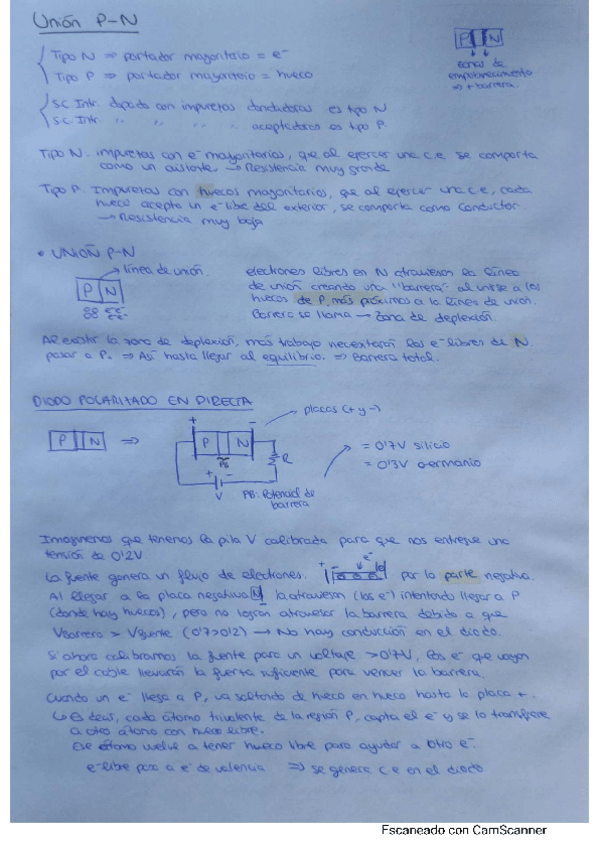 Unión P-N
Tipo N ⇒ portador mayoritario = e⁻
Tipo P ⇒ portador mayoritario = hueco
P N
zonas de
empobrecimiento
⇒ + barrera.
SC Intr. dopado con impurezas donadoras es tipo N
SC Intr. " " " " aceptadoras es tipo P.
Tipo N. impurezas con e⁻ mayoritarios, que al ejercer una c.e. se comporta
como un aislante. → Resistencia muy grande
Tipo P. Impurezas con huecos mayoritarios, que al ejercer una c.e, cada
hueco acepta un e⁻ libre del exterior, se comporta como conductor.
→ Resistencia muy baja
• UNIÓN P-N
línea de unión.
P N
electrones libres en N atraviesan la línea
de unión creando una "barrera" al unirse a los
huecos de P, más próximos a la línea de unión.
Barrera se llama → Zona de deplexión.
Al existir la zona de deplexión, más trabajo necesitarán los e⁻ libres de N
pasar a P. ⇒ Así hasta llegar al equilibrio. ⇒ Barrera total.
DIODO POLARIZADO EN DIRECTA
placas (+ y -)
P N ⇒ + P N -
PB
R
+ -
V
PB: Potencial de
barrera
= 0'7V silicio
= 0'3V Germanio
Imaginemos que tenemos la pila V calibrada para que nos entregue una
tensión de 0'2V
La fuente genera un flujo de electrones. + e⁻ por la parte negativa.
Al llegar a la placa negativa N la atraviesan (los e⁻) intentando llegar a P
(donde hay huecos), pero no logran atravesar la barrera debido a que
Vbarrera > Vfuente (0'7>0'2) → No hay conducción en el diodo.
Si ahora calibramos la fuente para un voltaje >0'7V, los e⁻ que vayan
por el cable llevarán la fuerza suficiente para vencer la barrera.
Cuando un e⁻ llega a P, va saltando de hueco en hueco hasta la placa +.
↳ Es decir, cada átomo trivalente de la región P, capta el e⁻ y se lo transfiere
a otro átomo con hueco libre.
Ese átomo vuelve a tener hueco libre para ayudar a otro e⁻.
e⁻ libre pasa a e⁻ de valencia ⇒ se genera c.e en el diodo
Escaneado con CamScanner